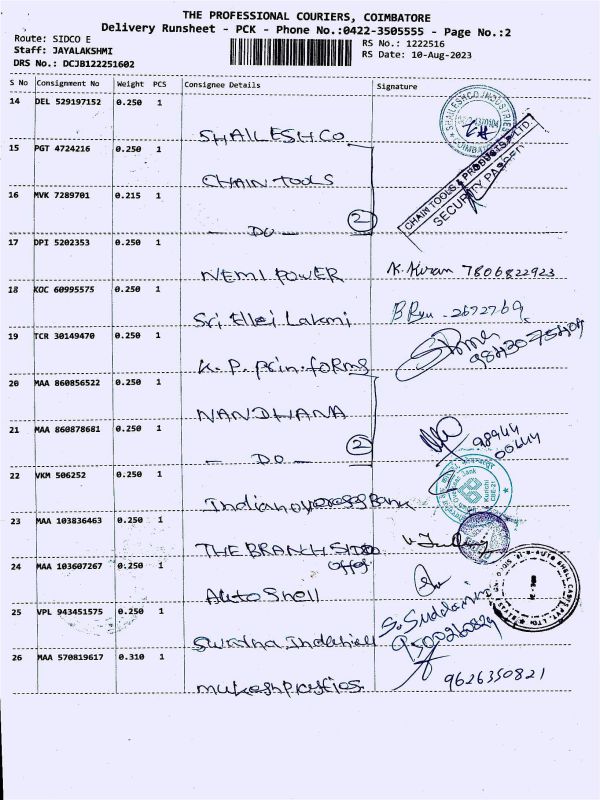 THE PROFESSIONAL COURIERS, COIMBATORE
Delivery Runsheet - PCK - Phone No.:0422-3505555 - Page No.:2
Route: SIDCO E
Staff: JAYALAKSHMI
DRS No.: DCJB122251602
RS No.: 1222516
RS Date: 10-Aug-2023
S No Consignment No Weight PCS Consignee Details Signature
14 DEL 529197152 0.250 1 SHAILESHCO
SHAILESHCO INDUSTRIES
COIMBATORE
15 PGT 4724216 0.250 1 CHAIN TOOLS
CHAIN TOOLS & PRODUCTS P LTD.
SECURITY PASSED
16 MVK 7289701 0.215 1 — DO — 2
17 DPI 5202353 0.250 1 NEMI POWER K. Kiran 7806822923
18 KOC 60995575 0.250 1 Sri Ellei Lakmi 2672769
19 TCR 30149470 0.250 1 K. P. prin. forms
20 MAA 860856522 0.250 1 NANDHANA
21 MAA 860878681 0.250 1 — DO — 2 98944
00444
22 VKM 506252 0.250 1 Indian overseas Bank
23 MAA 103836463 0.250 1 THE BRANCH SIDO
24 MAA 103607267 0.250 1 office
Auto Shell
25 VPL 943451575 0.250 1
26 MAA 570819617 0.310 1 9626350821